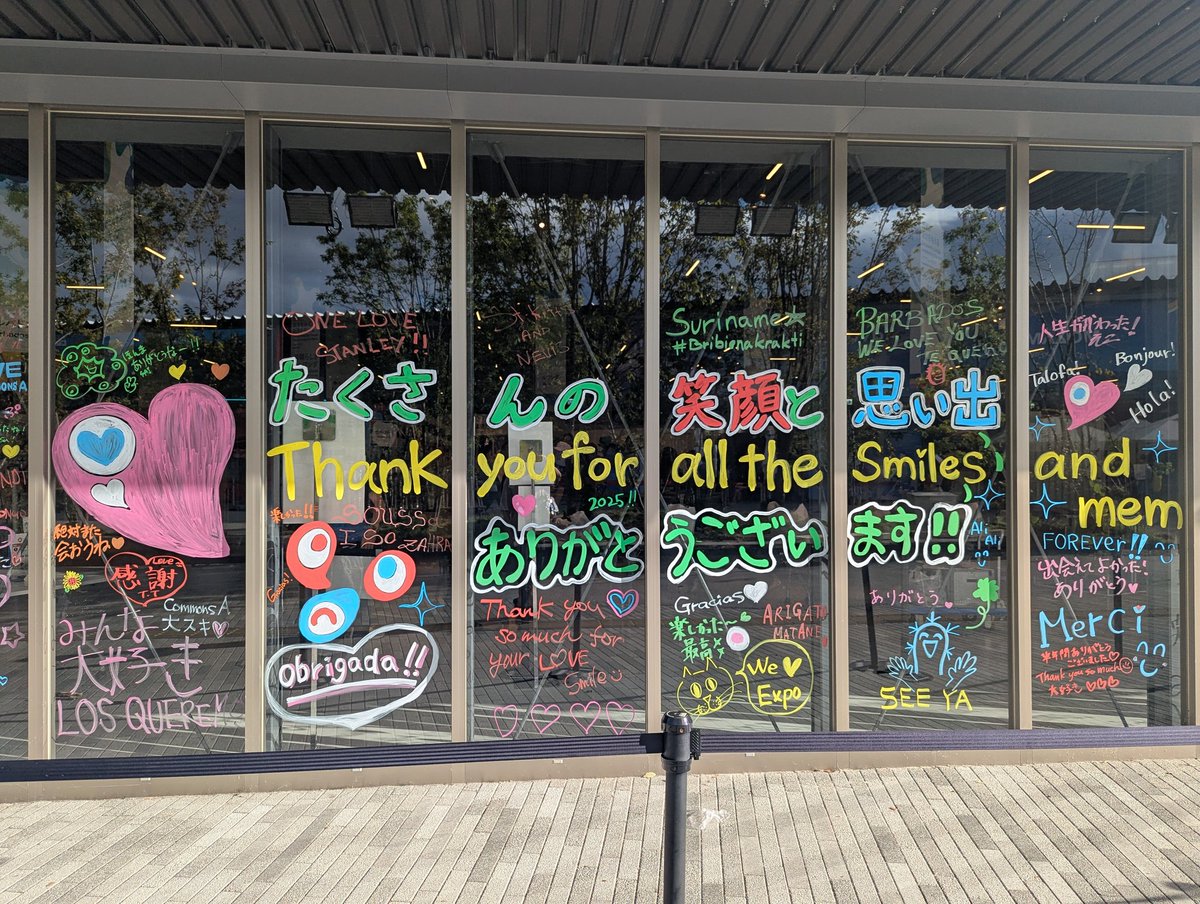 ほんま
ありがとな〜!!
絶対また
会おうね♡
感謝
T.T
Commons A
大スキ♡
みんな
大好き
LOS QUEREY
ONE LOVE
STANLEY!!
たくさんの笑顔と思い出
Thank you for all the Smiles and
mem
ありがとうございます!!
2025!!
楽しかった!!
I SO ZAHRA
Gracias!
Obrigada!!
Thank you
so much for
your LOVE
Smile
Suriname★
#Bribienakrakti
Gracias
楽しかった〜
最高
ARIGATO
MATANE
We ♥
Expo
BARBADOS
WE LOVE YOU
Ali
Ai
ありがとう
SEE YA
人生がかわった!
Talofa
Bonjour!
Hola!
FOREVER!!
出会えてよかった!
ありがとう♥
MERCi
半年間ありがとう
ございました♡
Thank you so much
大好き♡♡♡